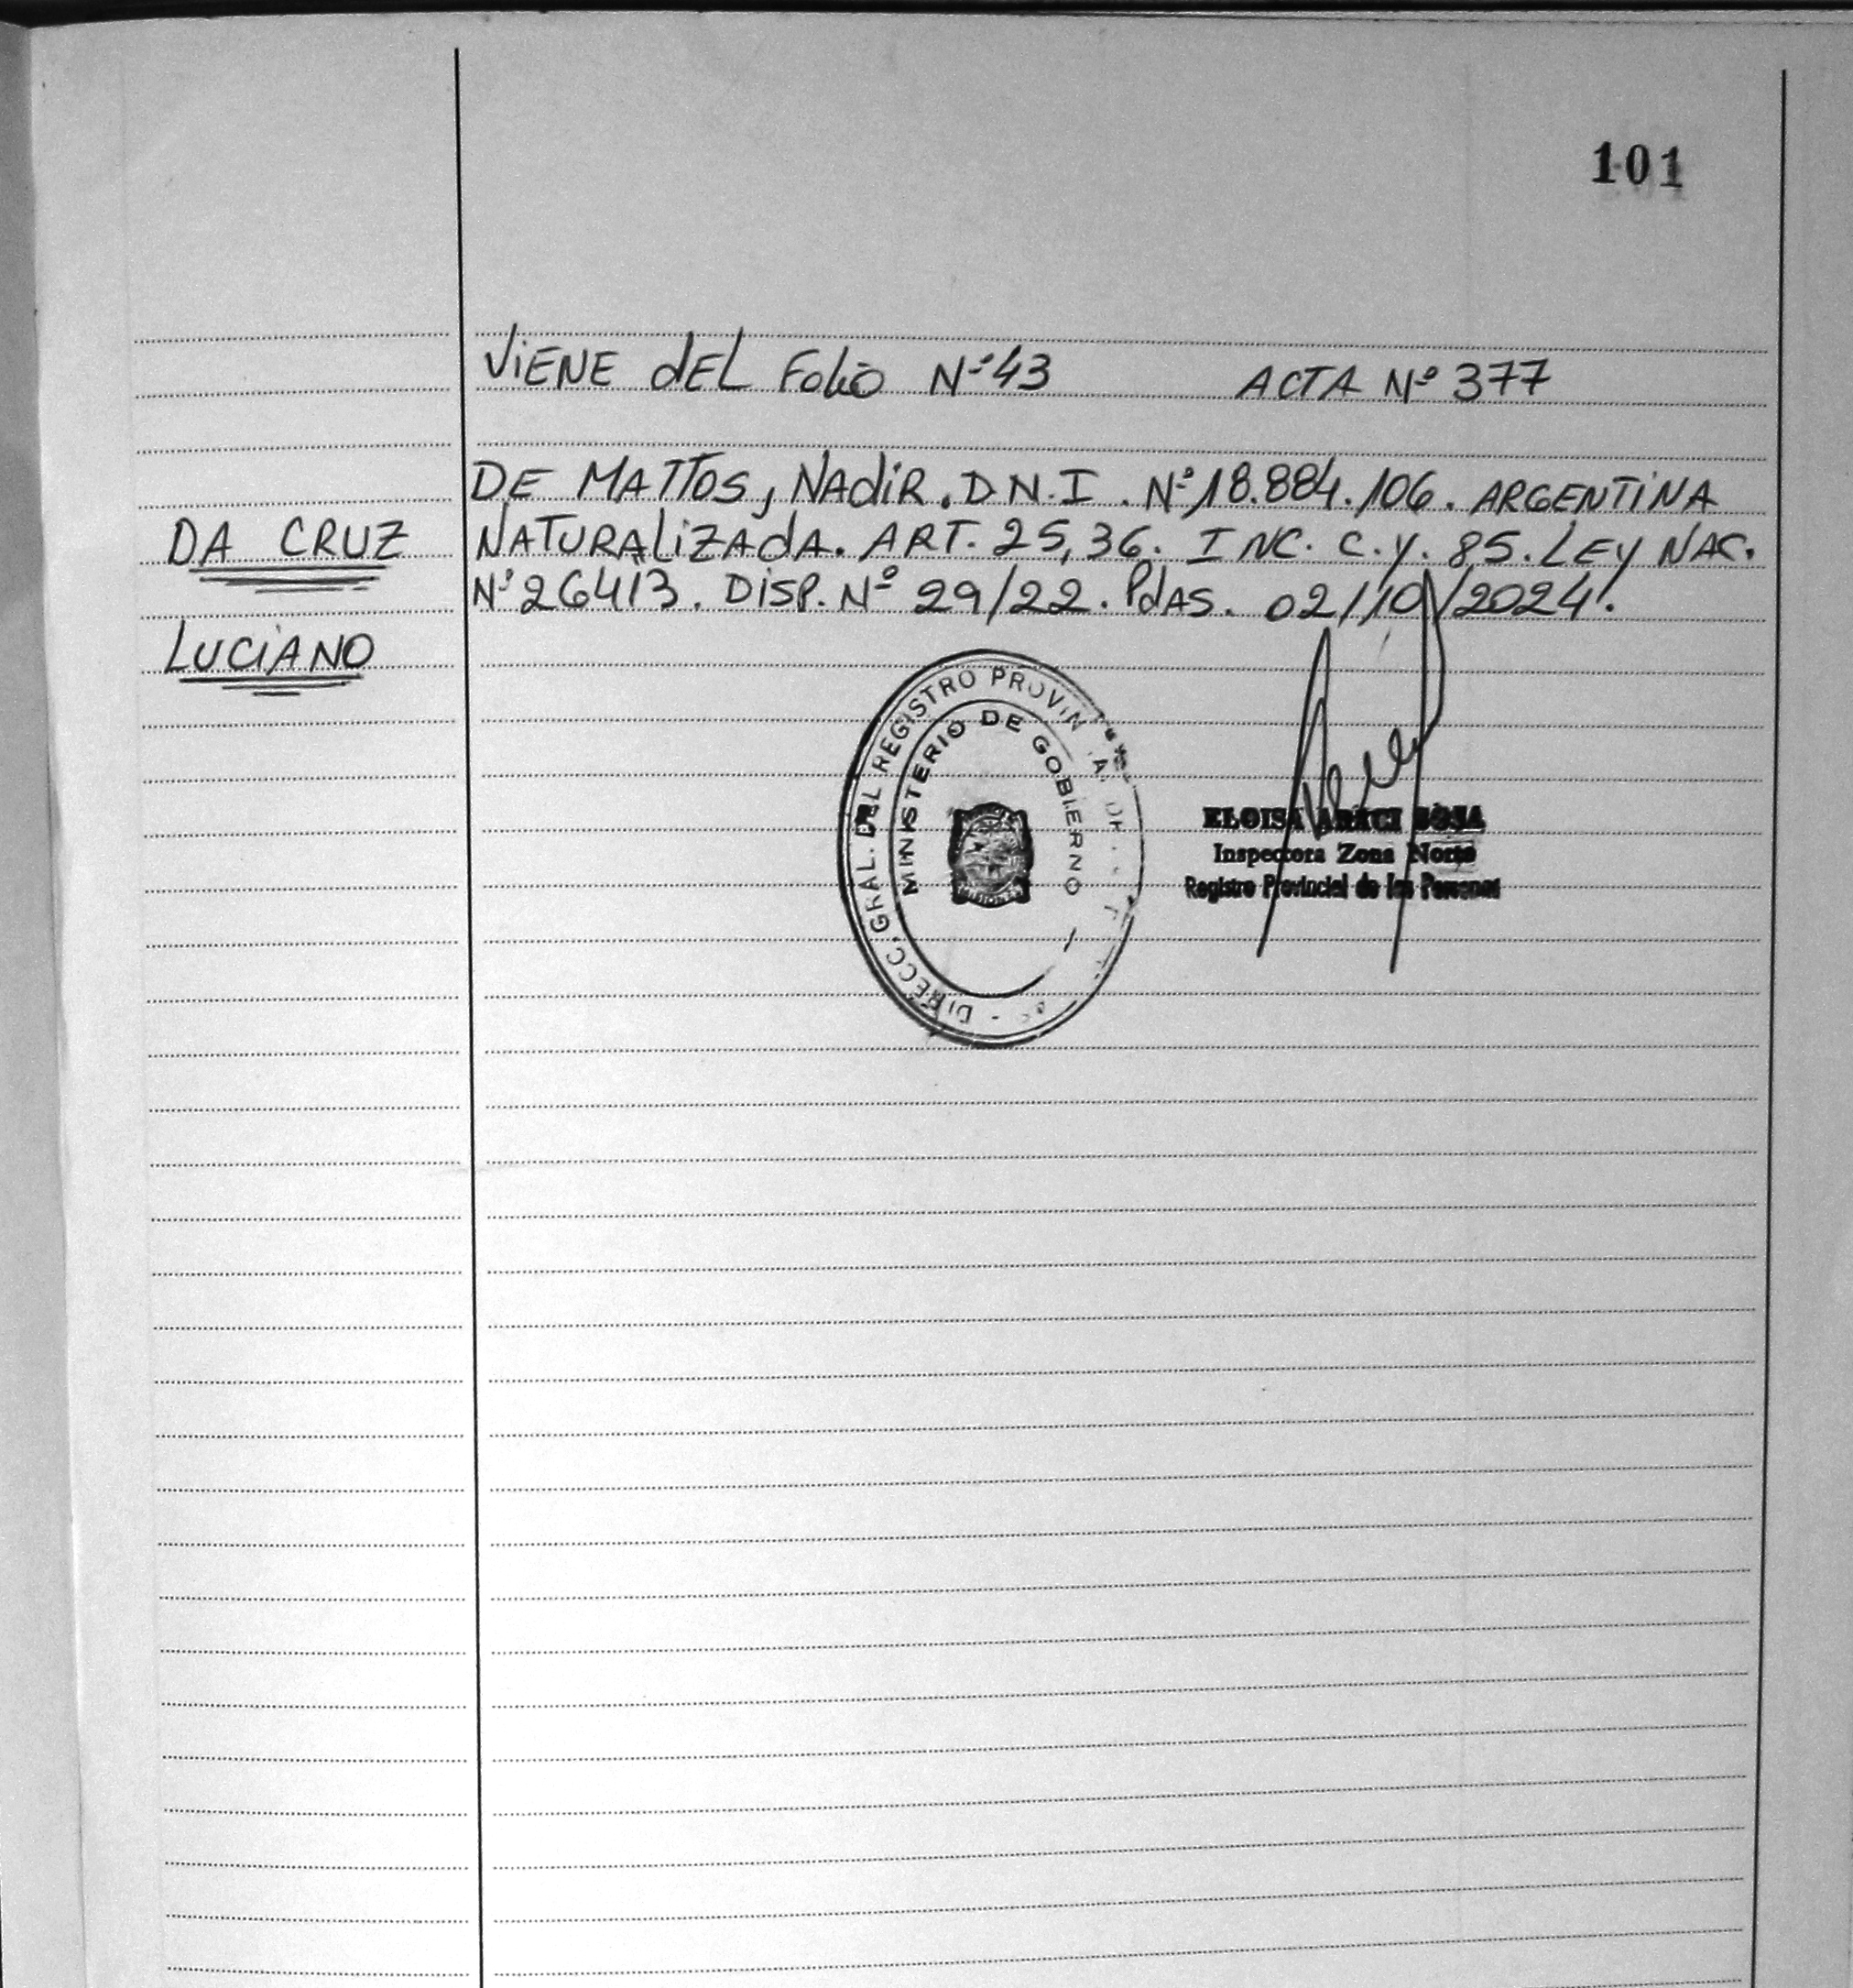 101
ViENE dEL Folio Nº 43 ACTA Nº 377
DE MATTOS, NAdiR. D.N.I. Nº 18.884.106. ARGENTiNA
DA CRUZ NATURALiZAdA. ART. 25,36. INC. C.Y. 85. LEY NAC.
Nº 26413. DiSP. Nº 29/22. PdAS. 02/10/2024.
LUCiANO
DIRECC. GRAL. DEL REGISTRO PROVIN
MINISTERIO DE GOBIERNO
MISIONES
ELOISA ARACI SOSA
Inspectora Zona Norte
Registro Provincial de las Personas